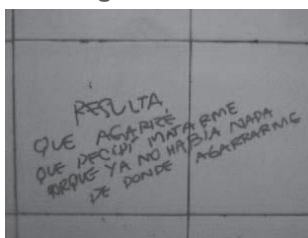 RESULTA,
QUE AGARRÉ
QUE DECIDÍ MATARME
PORQUE YA NO HABÍA NADA
DE DONDE AGARRARME